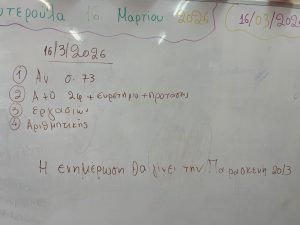 υτερούλα 16 Μαρτίου 2026
16/03/2026
16/3/2026
① Αν σ. 73
② Α+Ο 2φ + ευρετήριο + πρότασης
③ Εργασιών
④ Αριθμητικής
Η ενημέρωση θα γίνει την Παρασκευή 20/3